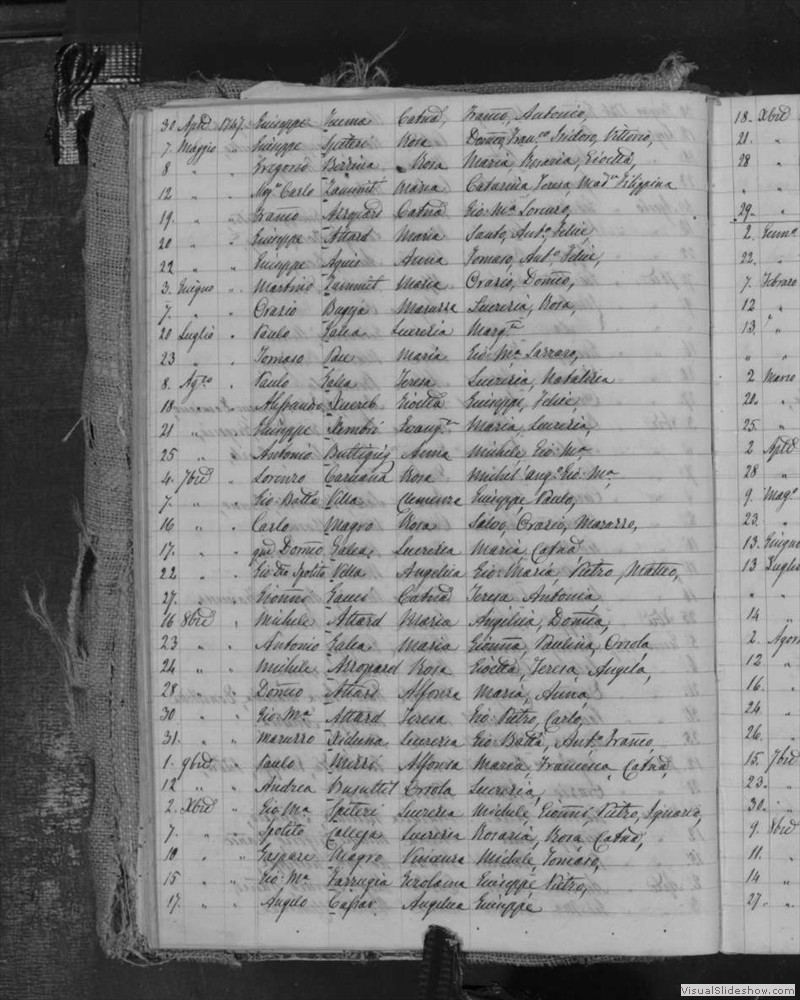 30 Aple 1747 Giuseppe Gauci Catna, Franco, Antonio,
7 Maggio " Giuseppe Spiteri Rosa Domco, Isidoro, Vittorio,
8 " " Gregorio Rosa Maria, Rosaria, Gioetta,
12 " " Carlo Zammit Maria Catarina, Teresa, Filippina
19. " " Franco Catna Gio: Ma
20 " " Giuseppe Attard Maria Santo, Anto Felice
22 " " Giuseppe Agius Anna Tomaso, Anto Felice,
3. Giugno " Martino Zammit Maria Orazio, Domco,
7. " " Orazio Bugeja Maruzza Lucrezia, Rosa,
20 Luglio " Paulo Galea Lucrezia Margta
23 " " Tomaso Pace Maria Gio: Ma
8. Agto " Paulo Galea Teresa Lucrezia, Natalizia
18 " " Alessandro Xuereb Gioetta Giuseppe, Felice
21 " " Giuseppe Xembri Evangta Maria, Lucrezia,
25 " " Antonio Buttigieg Anna Michele Gio: Ma
4. 7bre " Lorenzo Caruana Rosa Michel' ang: Gio: Ma
7. " " Gio: Batta Vella Clemenza Giuseppe Paulo,
16 " " Carlo Magro Rosa Salvo, Orazio, Maruzzo,
17. " " qm Domco Galea, Lucrezia Maria, Catna
22 " " Vella Angelica Gio: Maria, Pietro Matteo,
27. " " Gionni Gauci Catna Teresa Antonia
16 8bre " Michele Attard Maria Angelica, Domca,
23 " " Antonio Galea Maria Gionna, Paulina, Orsola
24 " " Michele Rosa Gioetta, Teresa, Angela,
28 " " Domco Attard Alfonza Maria, Anna
30 " " Gio: Ma Attard Teresa Gio: Pietro, Carlo,
31. " " Maruzzo Xicluna Lucrezia Gio: Batta, Anto Franco,
1. 9bre " Paulo Mizzi Alfonsa Maria, Catna,
12 " " Andrea Busuttil Orsola Lucrezia,
2. Xbre " Gio: Ma Spiteri Lucrezia Michele, Gionni, Pietro, Ignazio,
7. " " Ipolito Calleja Lucrezia Rosaria, Rosa, Catna,
10 " " Gaspare Magro Vincenza Michele Tomaso,
15 " " Gio: Ma Farrugia Gerolama Giuseppe Pietro,
17. " " Angelo Cassar Angelica Giuseppe
18. Xbre
21. "
28 "
" "
29. "
2. Genno
22. "
7. Febraro
12 "
13. "
" "
2 Marzo
20. "
25 "
2 Aple
28 "
9. Mago
23. "
13. Giugno
13 Luglio
" "
14 "
2. Agos
12 "
16. "
24 "
26. "
15. 7bre
23. "
30. "
9. 8bre
11. "
14 "
27. "
VisualSlideshow.com